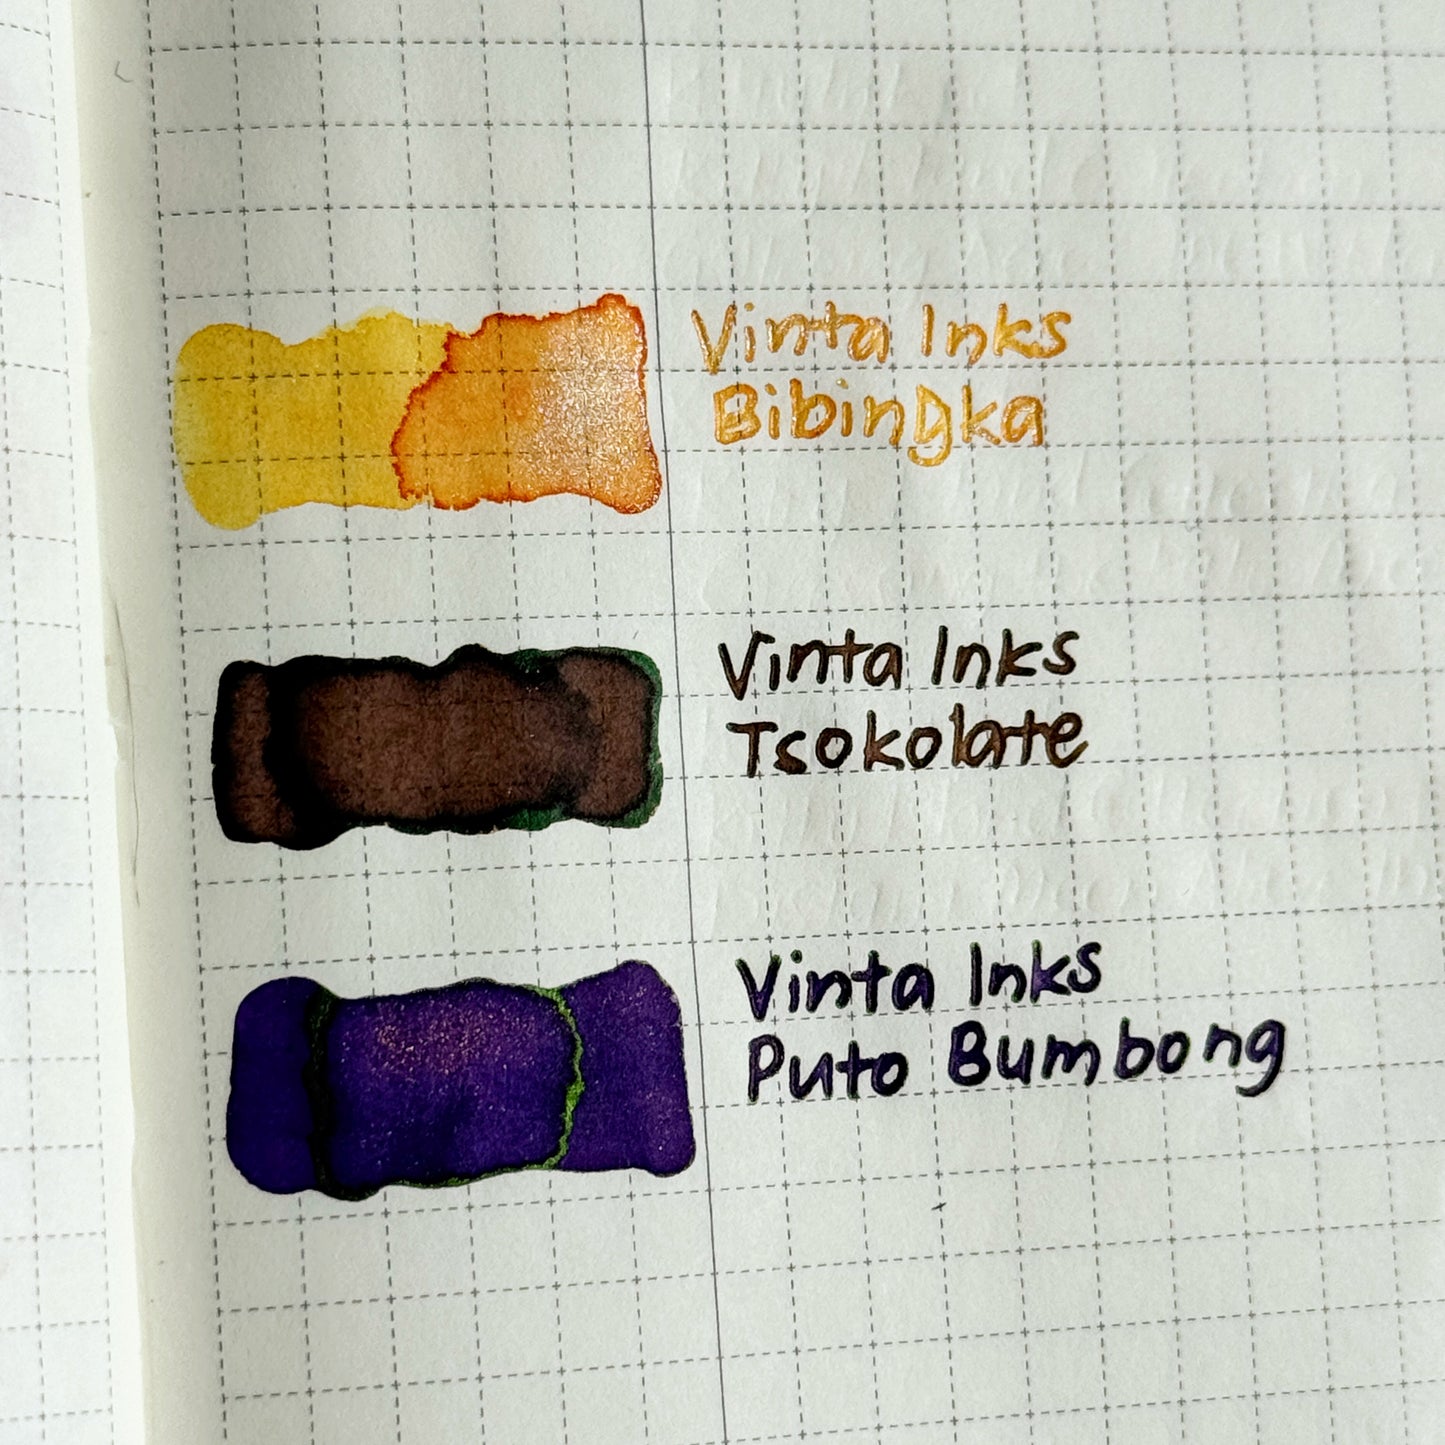 Vinta Inks
Bibingka
Vinta Inks
Tsokolate
Vinta Inks
Puto Bumbong